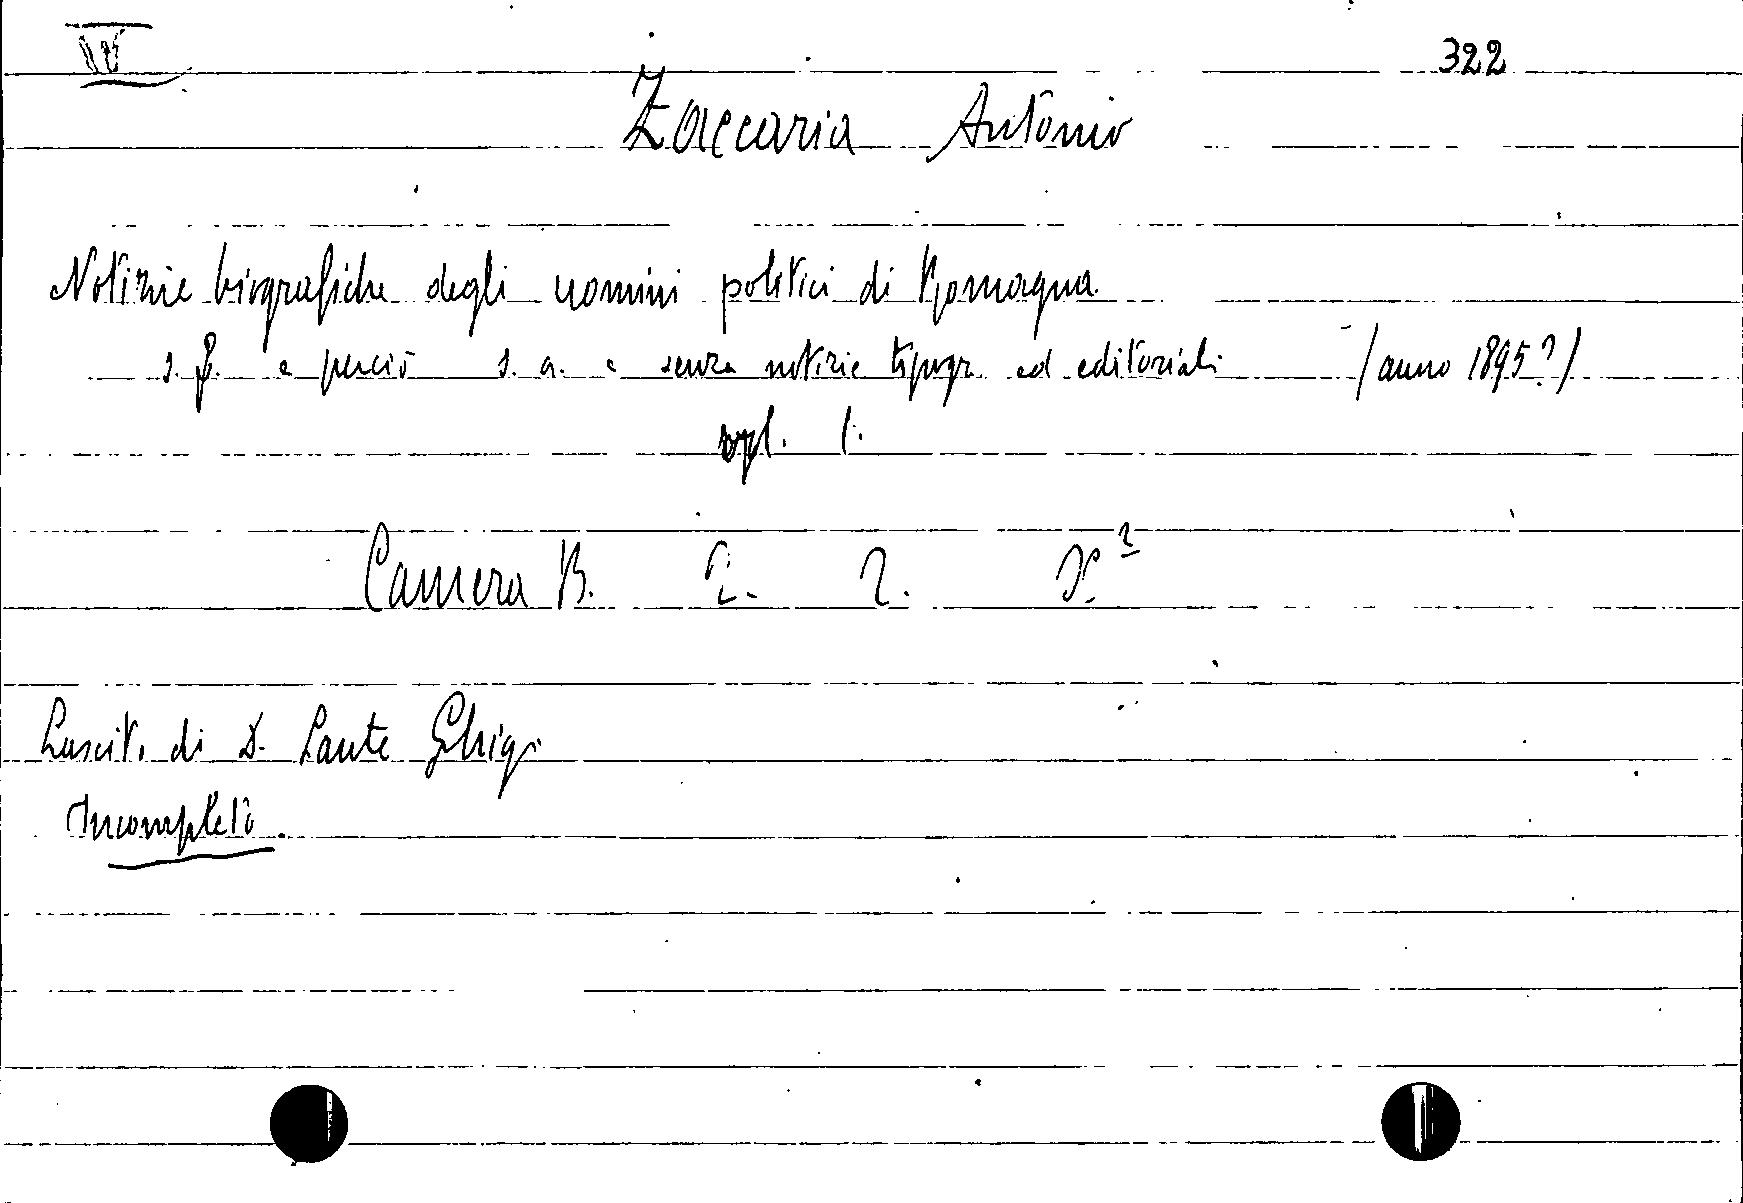 IV 322
Zaccaria Antonio
Notizie biografiche degli uomini politici di Romagna.
s. f. e perciò s. a. e senza notizie tipogr. ed editoriali /anno 1895?/
vol. 1.
Camera B. 2. 2.
Lascit. di D. Sante Ghigi
Incompleto.